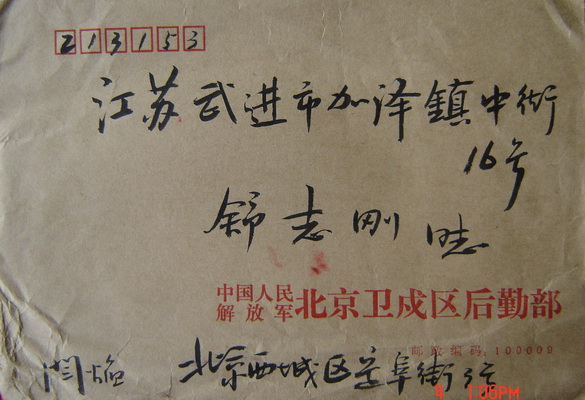 213153
江苏武进市加泽镇中街
16号
舒志刚同志
中国人民
解放军 北京卫戍区后勤部
邮政编码:100009
闫 北京西城区 阜街3号
1:05PM